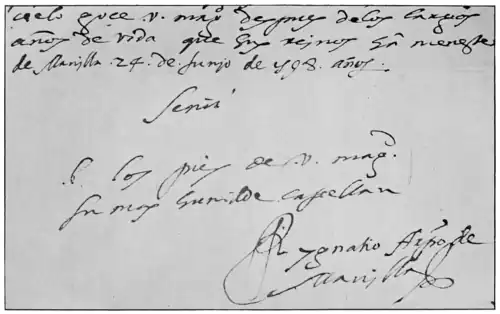 cielo goce v. mag.d despues de los largos
años de vida que sus reinos han menester
de Manilla 24. de Junio de 1598 años.
Señor
b. los pies de v. mag.d
su mas humilde capellan
fr ygnatio Arpo de
Manilla